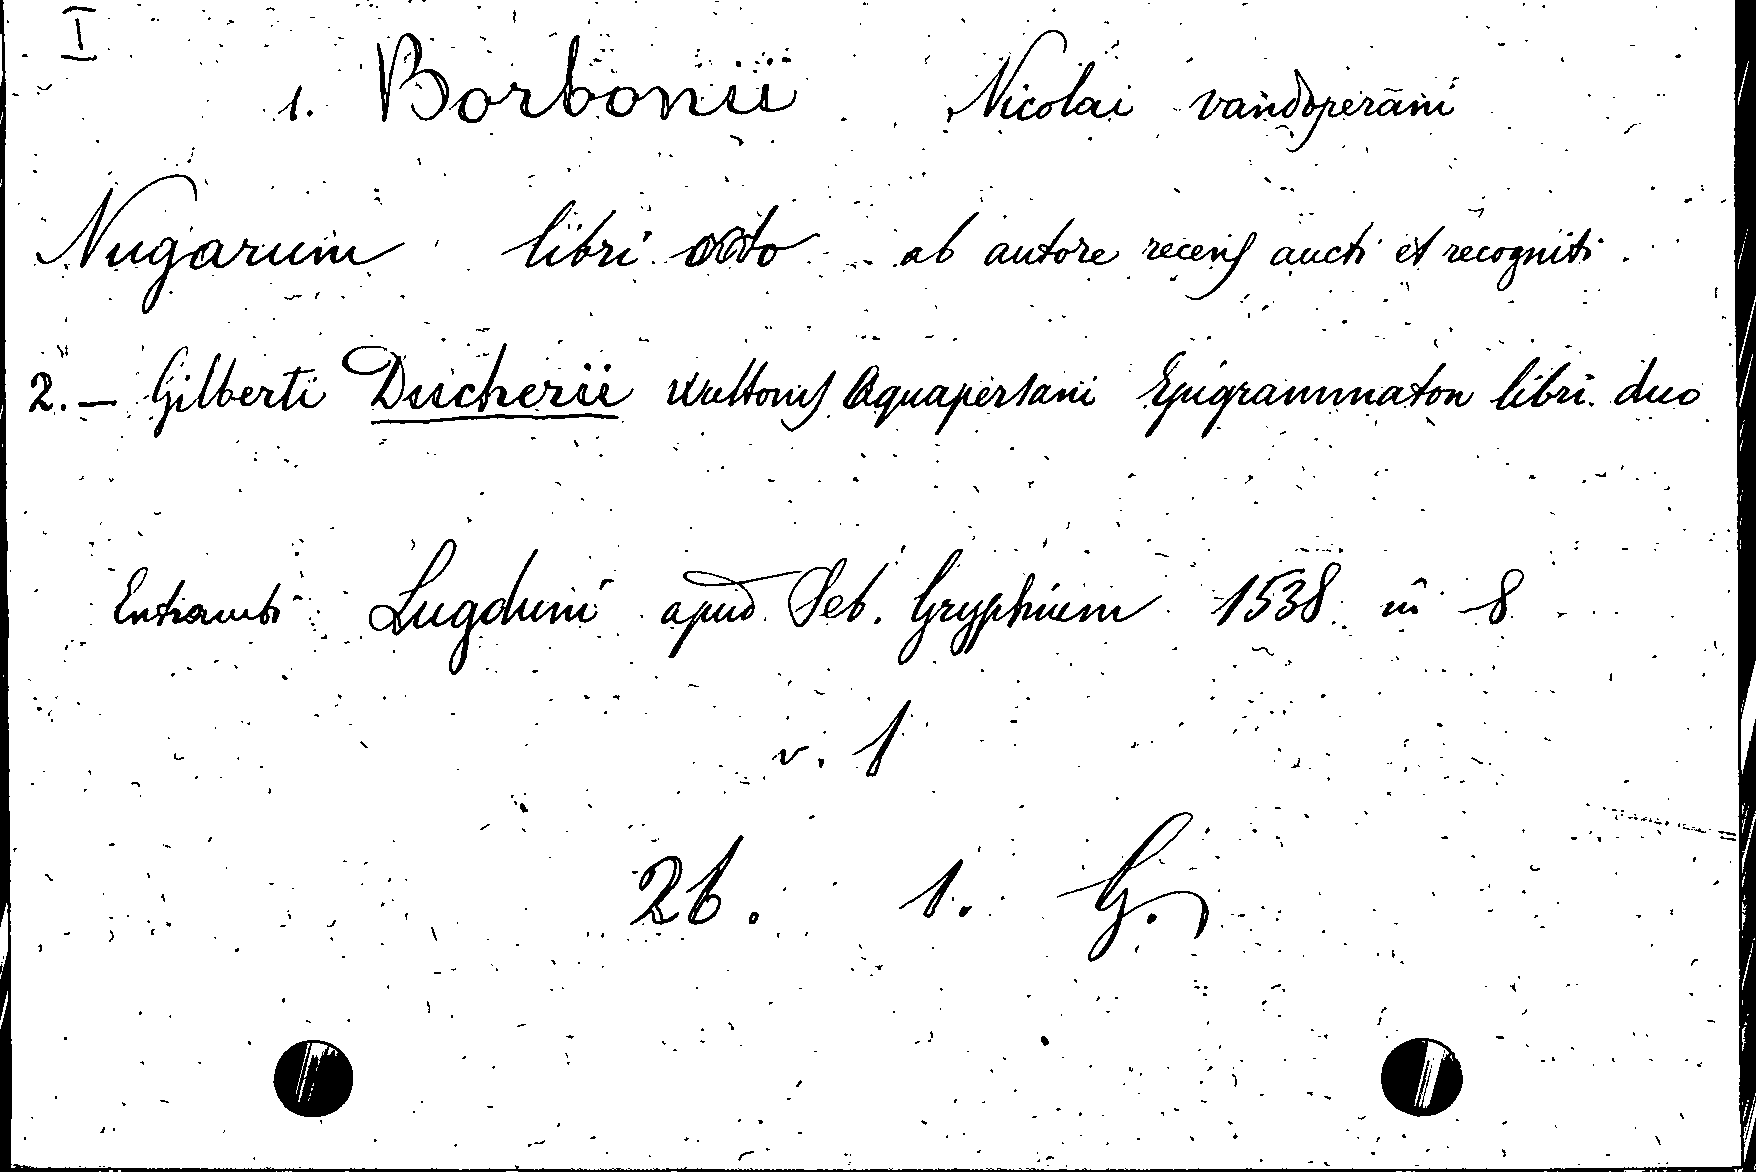 I
1. Borbonii Nicolai vandoperani
Nugarum libri octo ab autore recens aucti et recogniti.
2. — Gilberti Ducherii Vultonis Aquapersani Epigrammaton libri duo
Entrambi Lugduni apud Seb. Gryphium 1538 in 8
v. 1
26. 1. G.